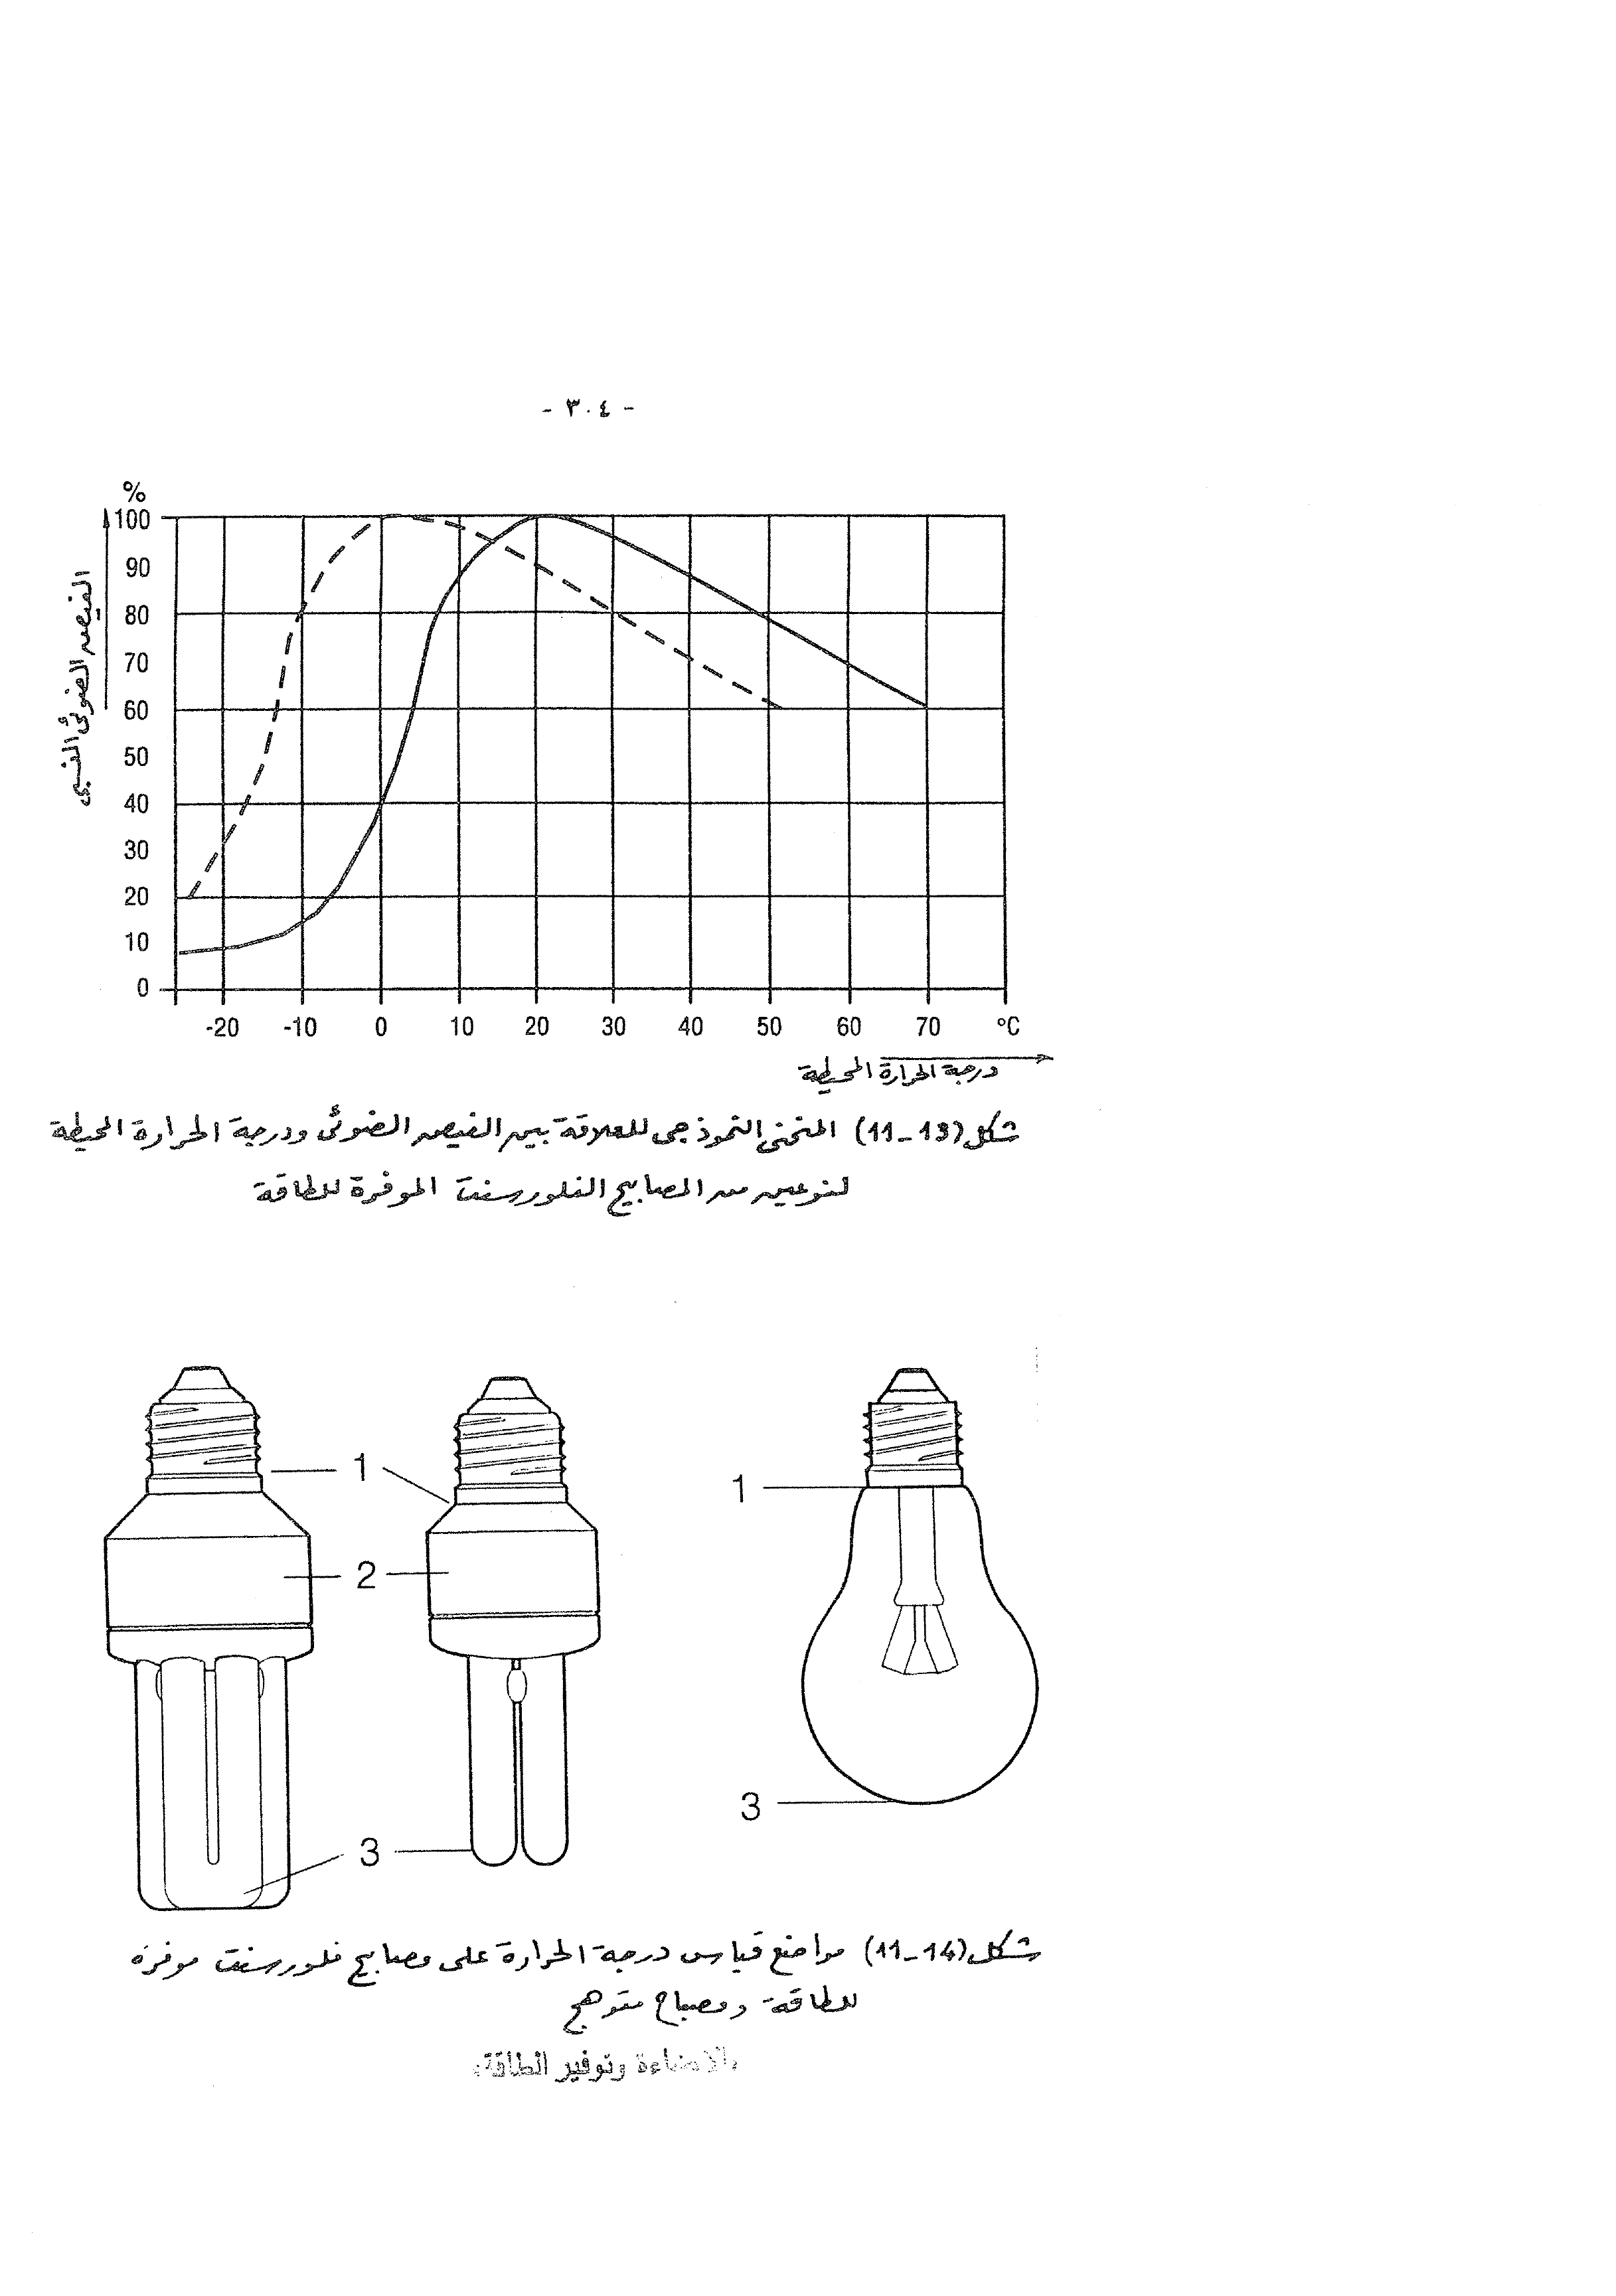 - ٣٠٤ -
%
100
90
80
70
60
50
40
30
20
10
0
الفيض الضوئى النسبى
-20 -10 0 10 20 30 40 50 60 70 °C
درجة الحرارة المحيطة
شكل (11-13) المنحنى النموذجى للعلاقة بين الفيض الضوئى ودرجة الحرارة المحيطة
لنوعين من المصابيح الفلورسنت الموفرة للطاقة
1
1
2
3
3
شكل (11-14) مواضع قياس درجة الحرارة على مصابيح فلورسنت موفرة
للطاقة ومصباح متوهج
الاضاءة وتوفير الطاقة